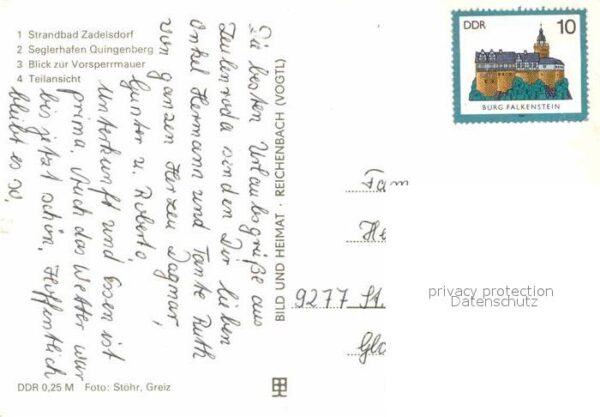 1 Strandbad Zadelsdorf
2 Seglerhafen Quingenberg
3 Blick zur Vorsperrmauer
4 Teilansicht
Die besten Urlaubsgrüße aus
Zeulenroda sinden Dir lieben
Onkel Hermann und Tante Ruth
von ganzen Herzen Dagmar,
Günter u. Roberto,
Unterkunft und Essen ist
prima. Auch das Wetter war
bis jetzt schön, Hoffentlich
bleibt es so.
DDR 0,25 M Foto: Stöhr, Greiz
BILD UND HEIMAT · REICHENBACH (VOGTL)
DDR 10
BURG FALKENSTEIN
Fam
He
9277 St.
Gla
privacy protection
Datenschutz